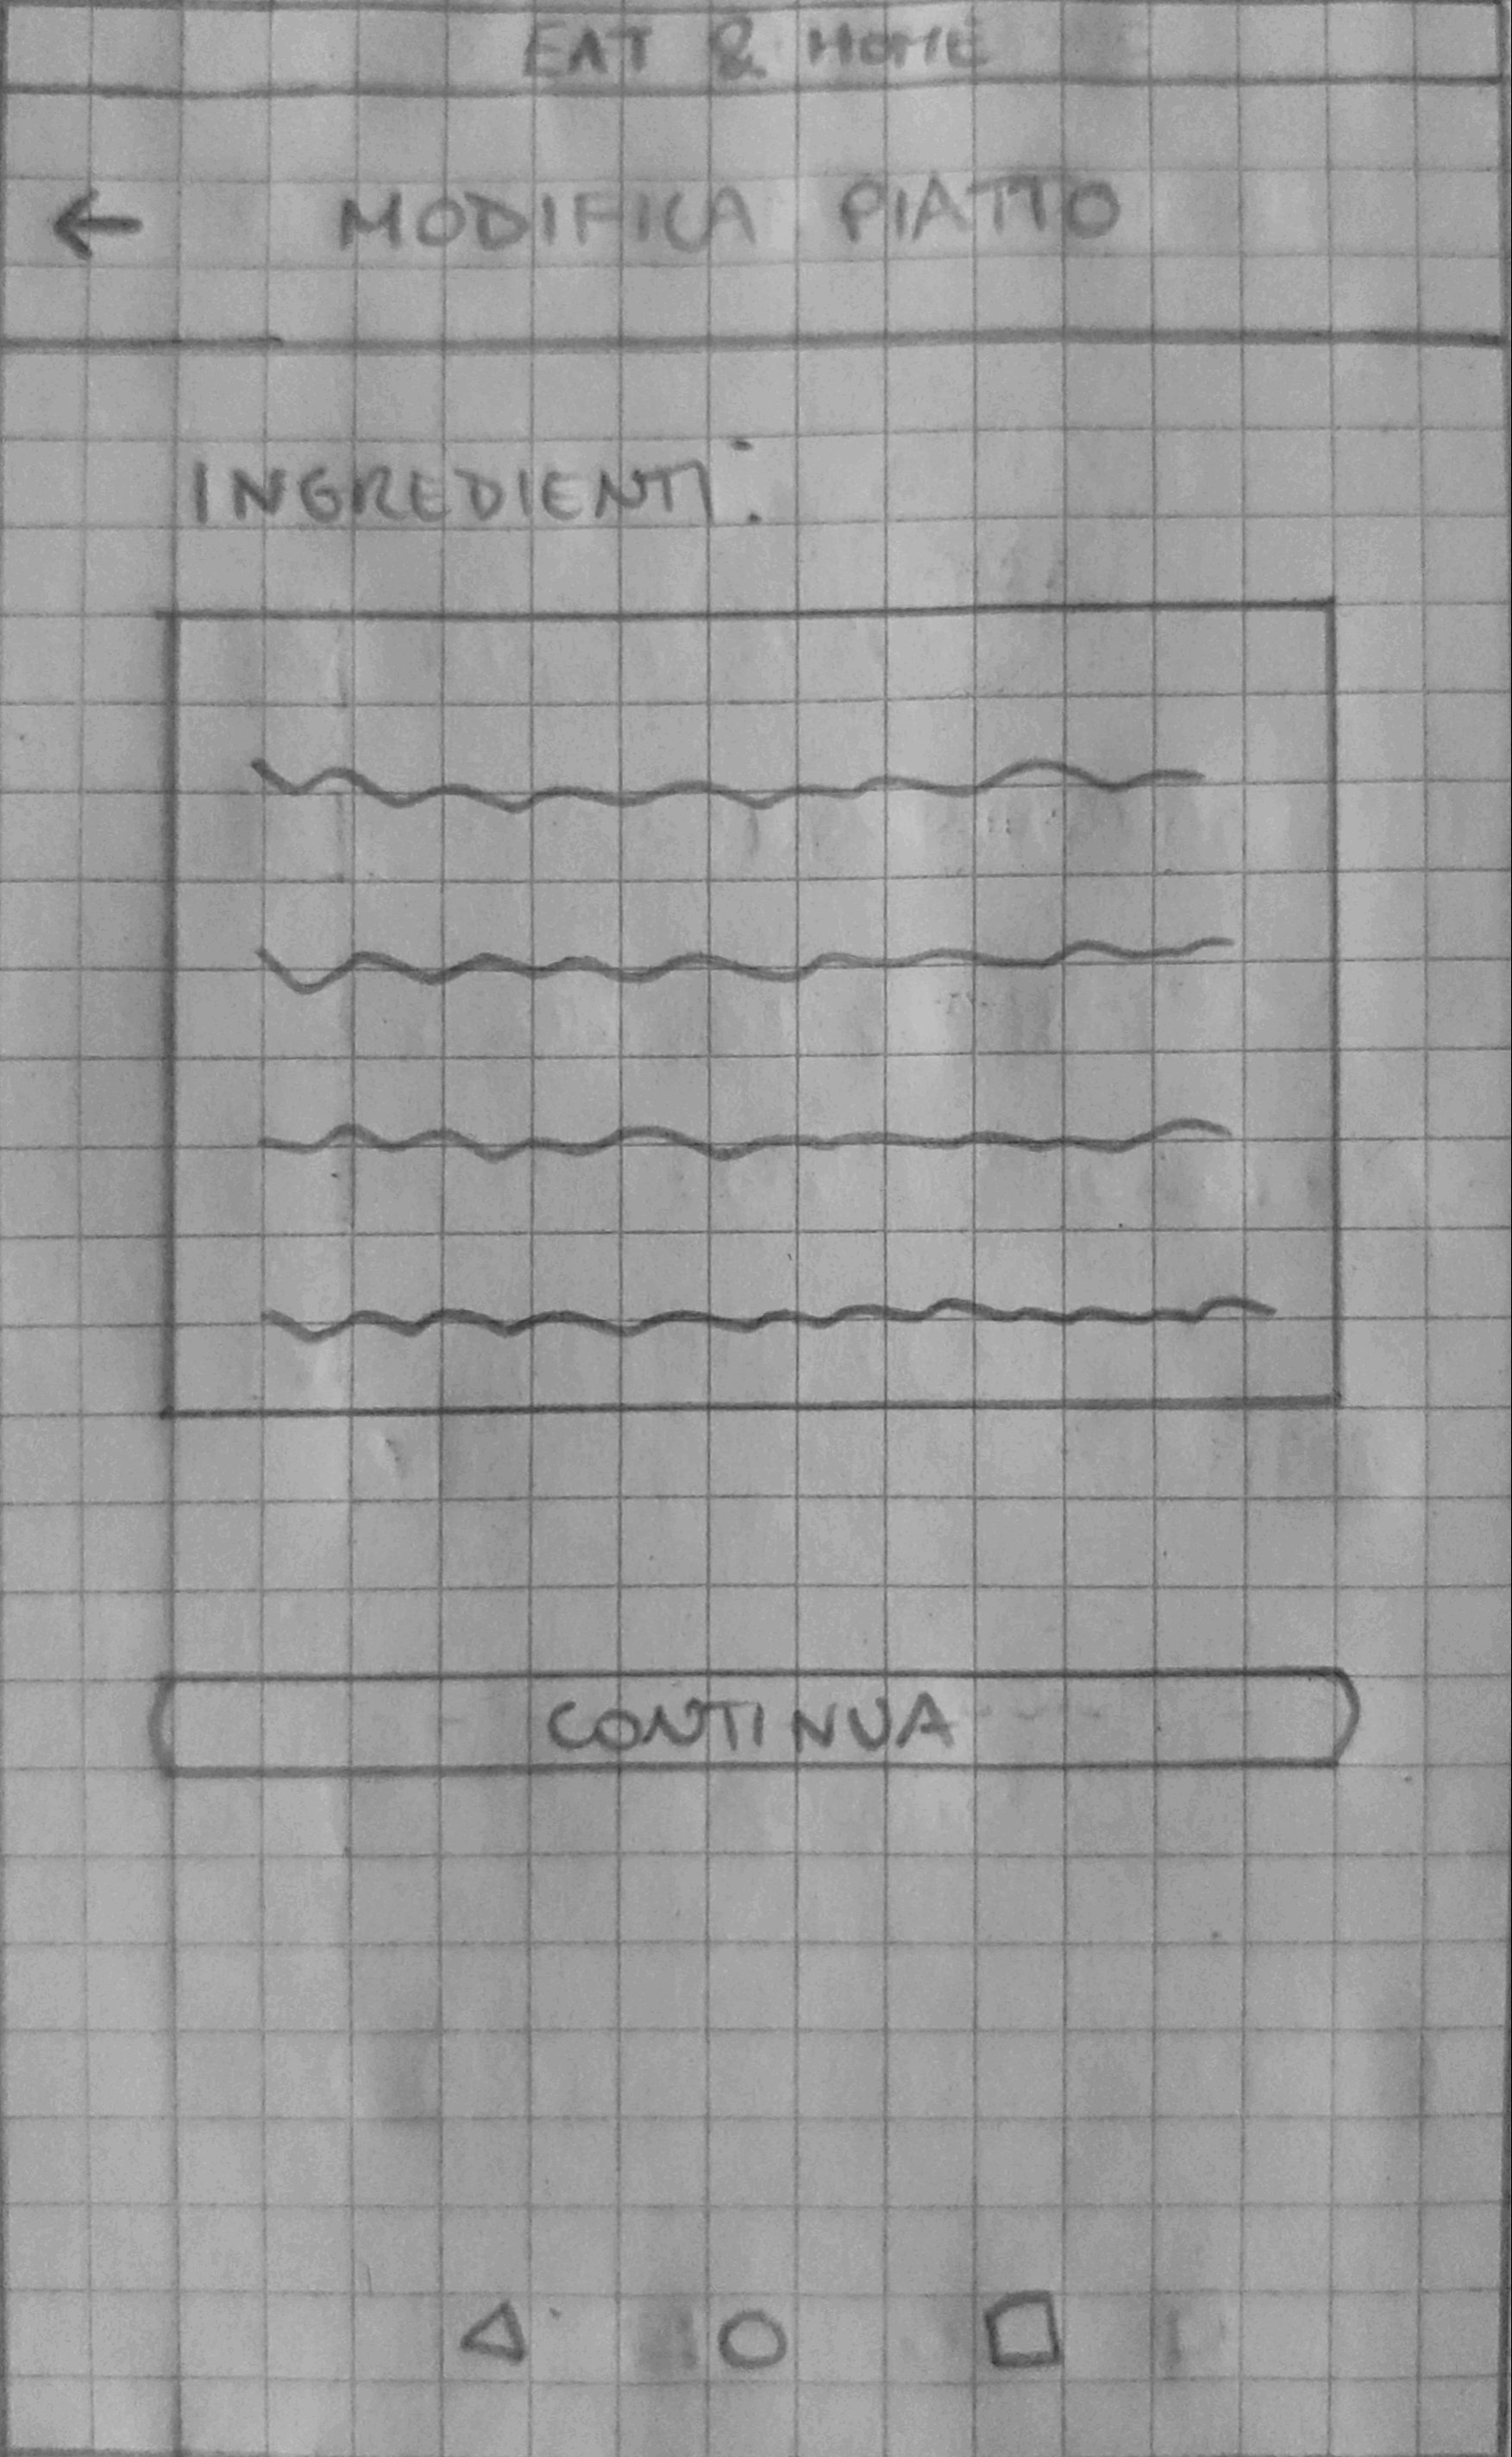 EAT & HOME
← MODIFICA PIATTO
INGREDIENTI:
CONTINUA